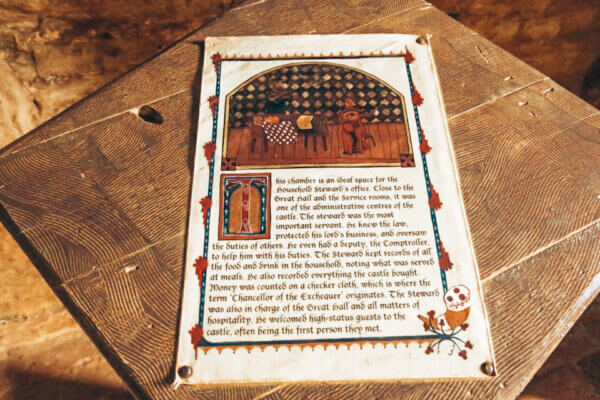 This chamber is an ideal space for the
Household Steward's office. Close to the
Great Hall and the Service rooms, it was
one of the administrative centres of the
castle. The steward was the most
important servant. He knew the law,
protected his lord's business, and oversaw
the duties of others. He even had a deputy, the Comptroller,
to help him with his duties. The Steward kept records of all
the food and drink in the household, noting what was served
at meals. He also recorded everything the castle bought.
Money was counted on a checker cloth, which is where the
term 'Chancellor of the Exchequer' originates. The Steward
was also in charge of the Great Hall and all matters of
hospitality. He welcomed high-status guests to the
castle, often being the first person they met.